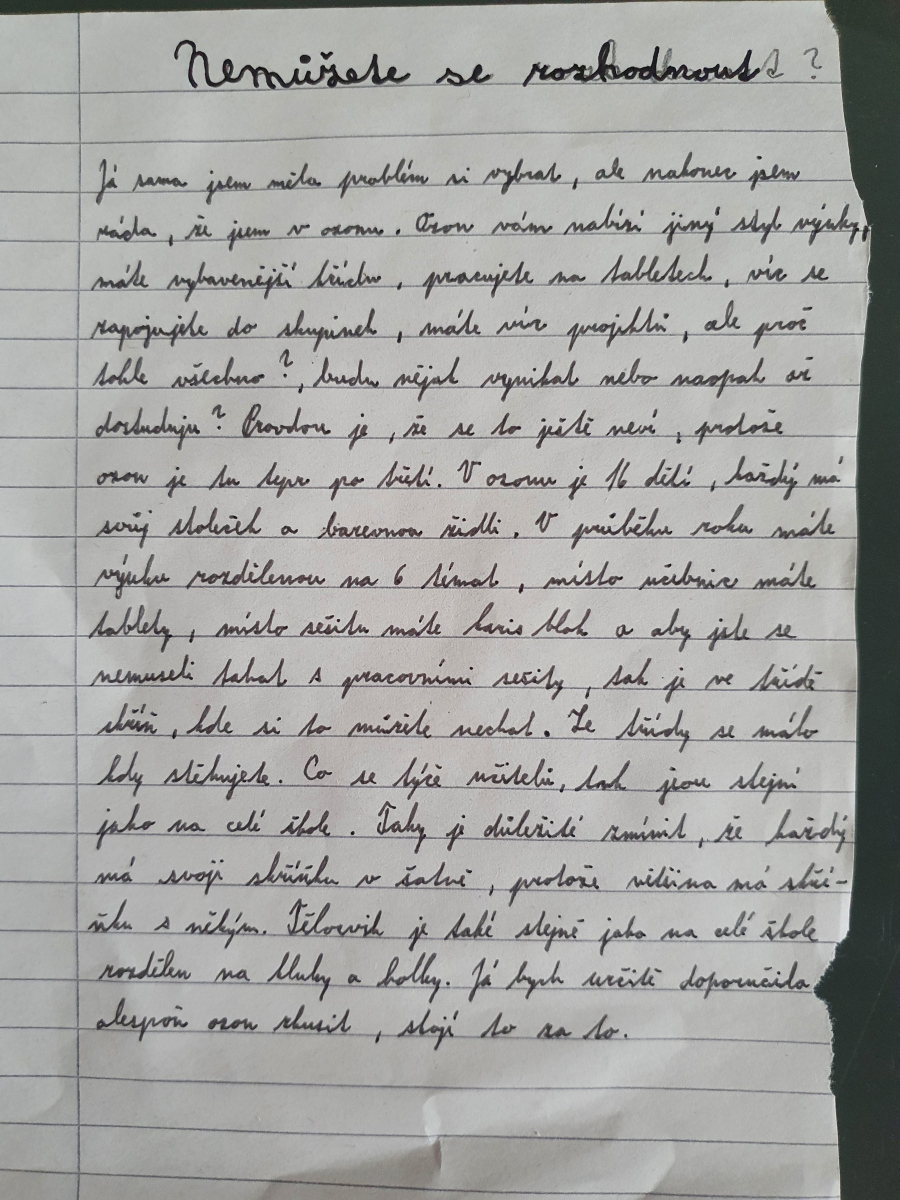 Nemůžete se rozhodnout ?
Já sama jsem měla problém si vybrat, ale nakonec jsem
ráda, že jsem v ozonu. Ozon vám nabízí jiný styl výuky,
máte vybavenější třídu, pracujete na tabletech, víc se
zapojujete do skupinek, máte víc projektů, ale proč
tohle všechno?, budu nějak vynikat nebo naopak až
dostuduju? Pravdou je, že se to ještě neví, protože
ozon je tu tepr po třetí. V ozonu je 16 dětí, každý má
svůj stoleček a barevnou židli. V průběhu roku máte
výuku rozdělenou na 6 témat, místo učebnic máte
tablety, místo sešitu máte karis blok a aby jste se
nemuseli tahat s pracovními sešity, tak je ve třídě
skříň, kde si to můžete nechat. Ze třídy se málo
kdy stěhujete. Co se týče učitelů, tak jsou stejní
jako na celé škole. Taky je důležité zmínit, že každý
má svoji skříňku v šatně, protože většina má skří-
ňku s někým. Tělocvik je také stejně jako na celé škole
rozdělen na kluky a holky. Já bych určitě doporučila
alespoň ozon zkusit, stojí to za to.